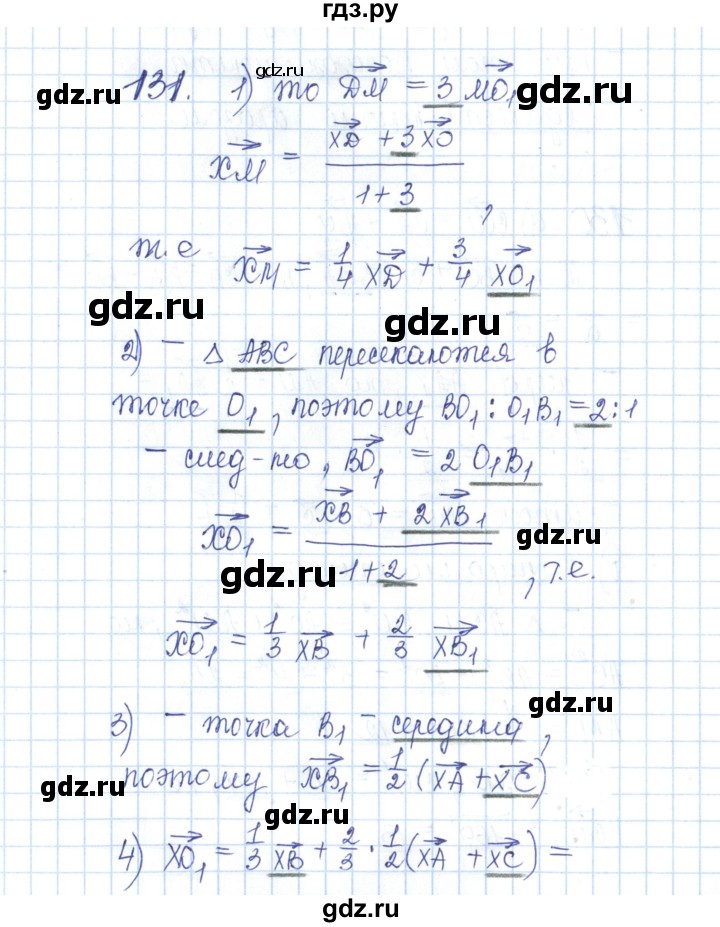 гдз.ру
gdz.ru
gdz.ru gdz.ru
131. 1) то DM = 3 MO₁
XM = XD + 3XO / 1 + 3 ,
т.е XM = 1/4 XD + 3/4 XO₁
gdz.ru gdz.ru
2) – △ ABC пересекаются в
точке O₁, поэтому BO₁ : O₁B₁ = 2 : 1
– след-но, BO₁ = 2 O₁B₁
gdz.ru
XO₁ = XB + 2XB₁ / 1 + 2 , т.е.
gdz.ru
gdz.ru
XO₁ = 1/3 XB + 2/3 XB₁
gdz.ru
3) – точка B₁ – середина,
поэтому XB₁ = 1/2 (XA + XC)
gdz.ru
gdz.ru
4) XO₁ = 1/3 XB + 2/3 · 1/2 (XA + XC) =
гдз.ру